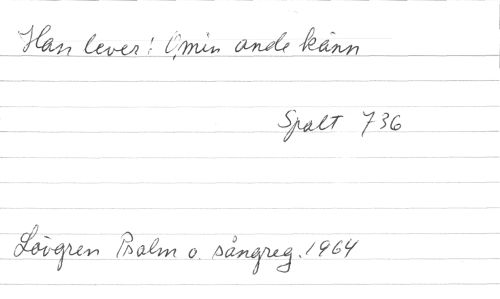 Han lever! O, min ande känn
Spalt 736
Lövgren Psalm o. sångreg. 1964